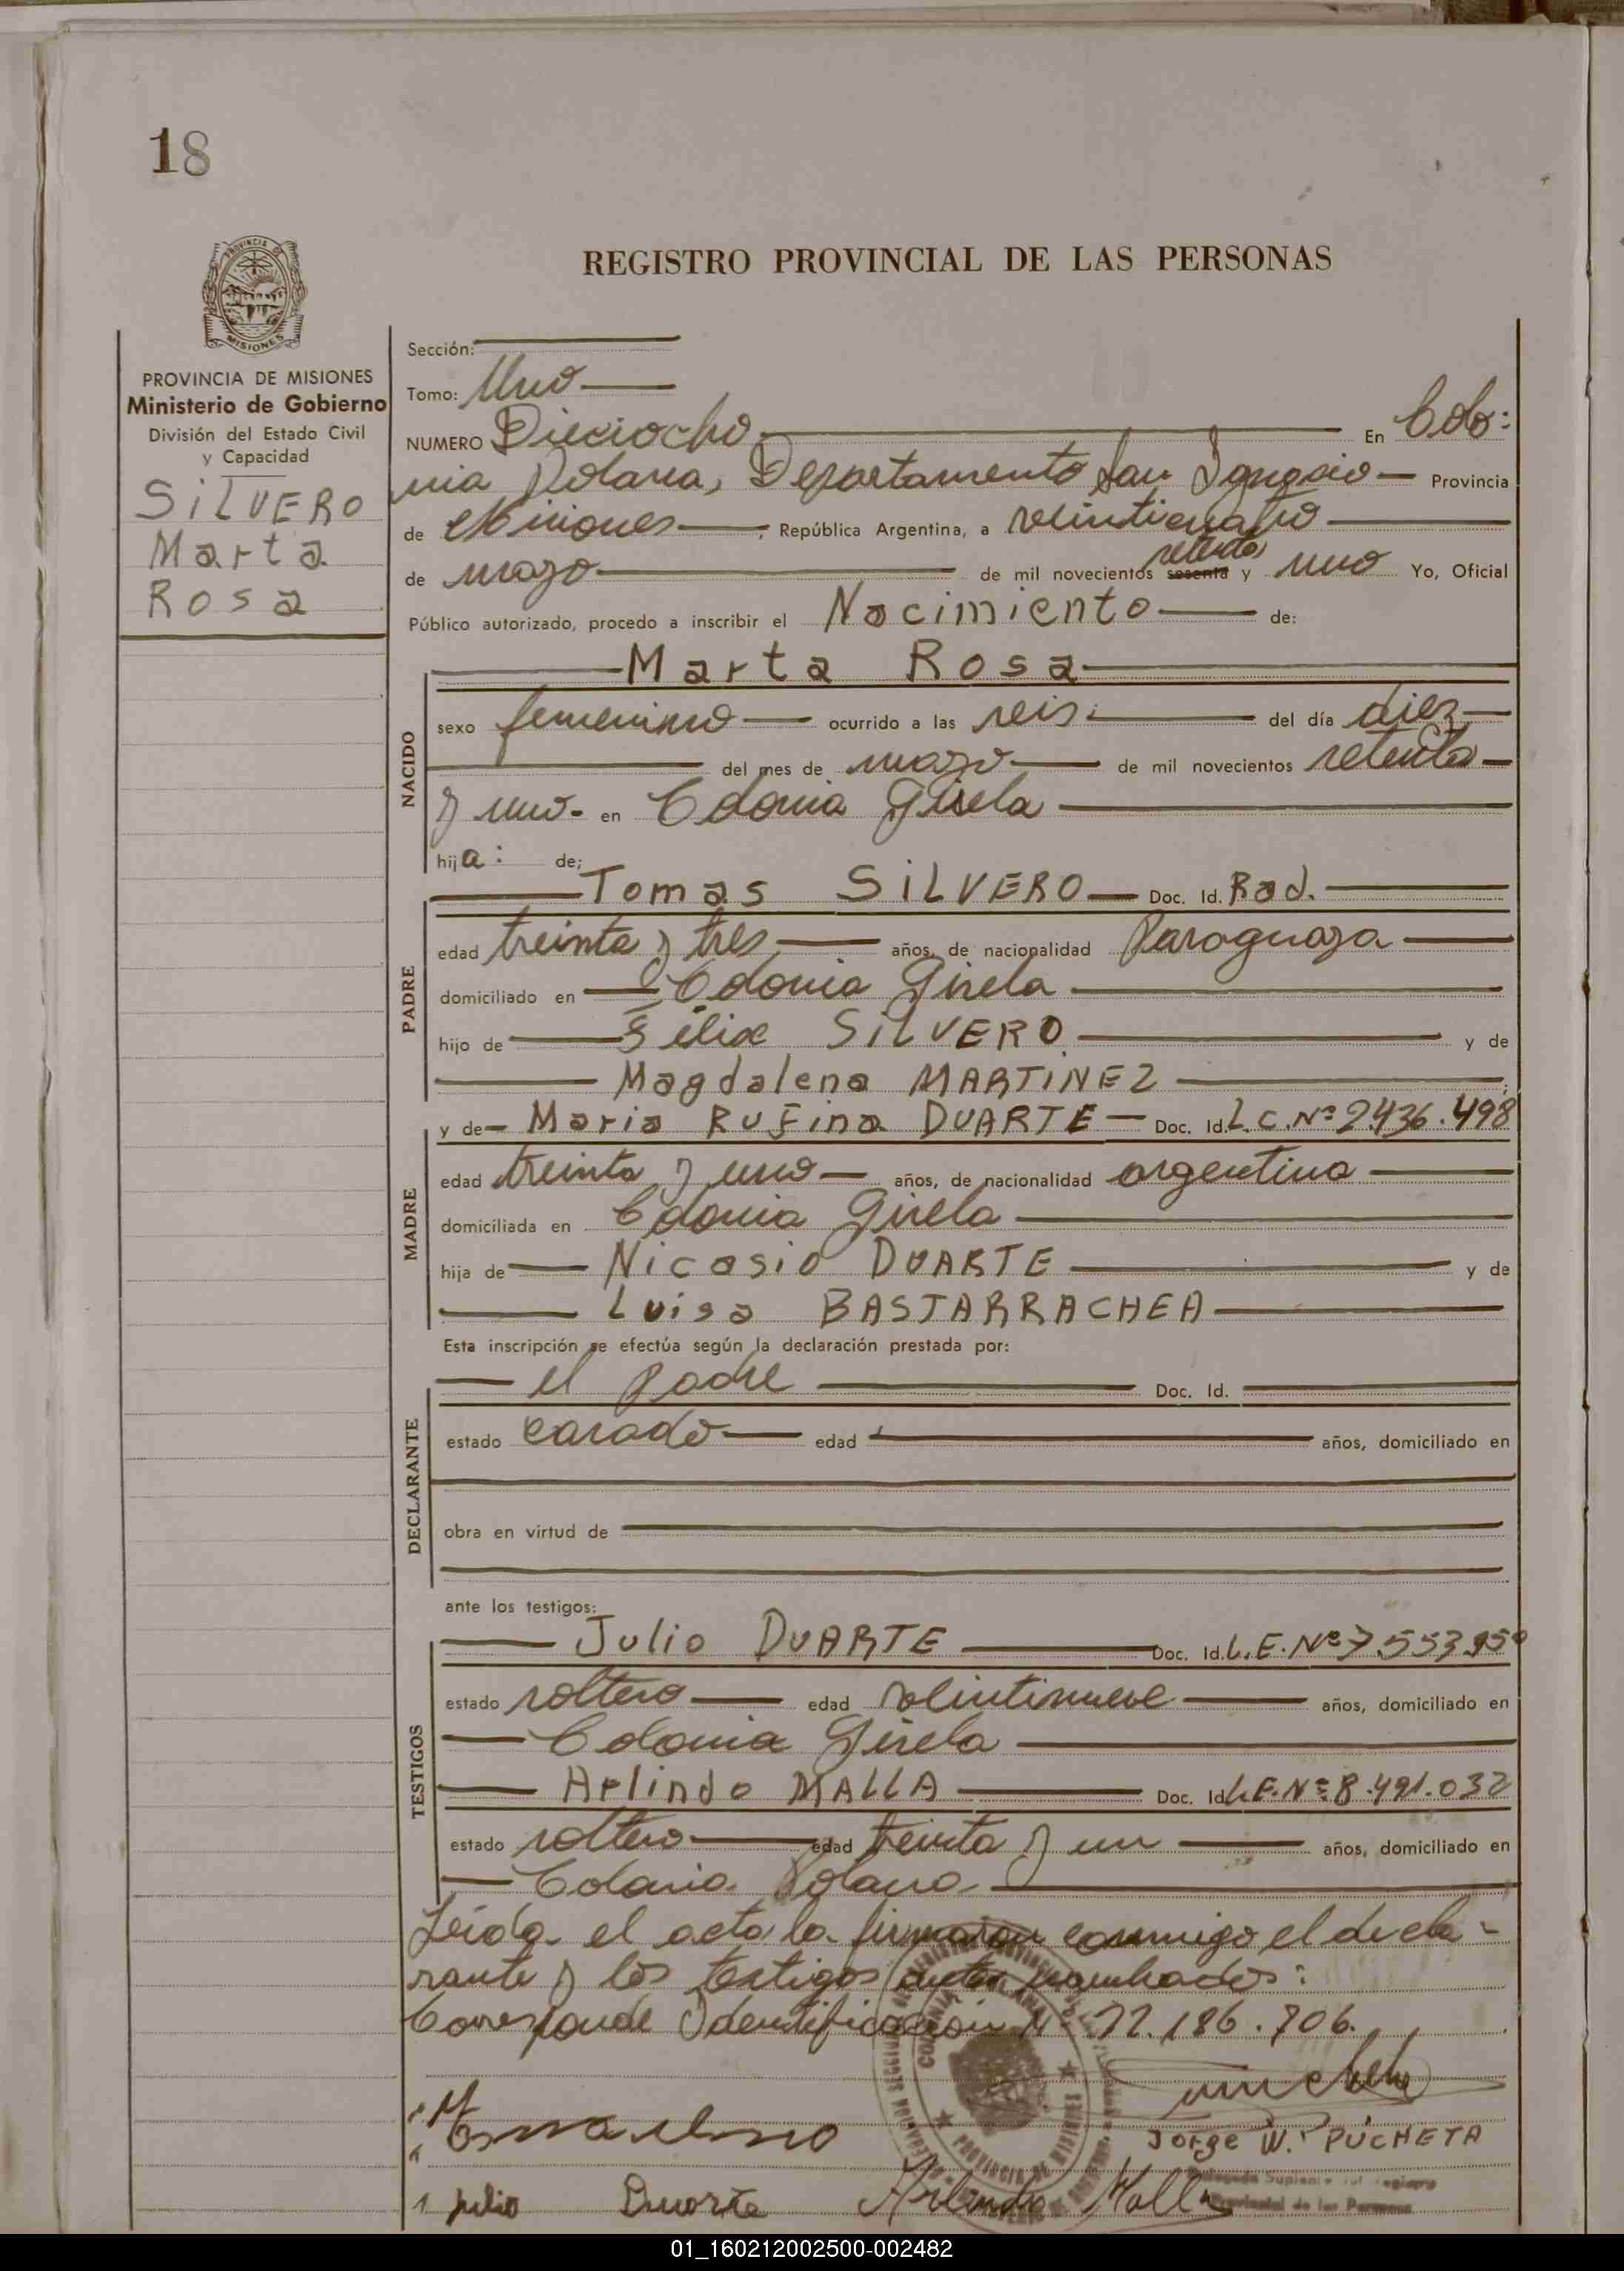 18
REGISTRO PROVINCIAL DE LAS PERSONAS
PROVINCIA DE MISIONES
Ministerio de Gobierno
División del Estado Civil
y Capacidad
SILVERO
Marta
Rosa
Sección:
Tomo: Uno
NUMERO Dieciocho En Colo:
nia Polana, Departamento San Ignacio Provincia
de Misiones, República Argentina, a veinticuatro
de mayo de mil novecientos sesenta setenta y uno Yo, Oficial
Público autorizado, procedo a inscribir el Nacimiento de:
Marta Rosa
NACIDO
sexo femenino ocurrido a las seis: del día diez
del mes de mayo de mil novecientos setenta
y uno en Colonia Gisela
hija: de:
Tomas SILVERO Doc. Id. Rad.
PADRE
edad treinta y tres años, de nacionalidad Paraguaya
domiciliado en Colonia Gisela
hijo de Félix SILVERO y de
Magdalena MARTINEZ;
y de Maria Rufina DUARTE Doc. Id. L.C. Nº 2.436.498
MADRE
edad treinta y uno años, de nacionalidad argentina
domiciliada en Colonia Gisela
hija de Nicasio DUARTE y de
Luisa BASTARRACHEA
Esta inscripción se efectúa según la declaración prestada por:
el padre Doc. Id.
DECLARANTE
estado casado edad años, domiciliado en
obra en virtud de
ante los testigos:
Julio DUARTE Doc. Id. L.E. Nº 7.553.950
TESTIGOS
estado soltero edad veintinueve años, domiciliado en
Colonia Gisela
Arlindo MALLA Doc. Id. L.E. Nº 8.491.032
estado soltero edad treinta y un años, domiciliado en
Colonia Polana
Leída el acta la firmaran conmigo el decla-
rante y los testigos antes nombrados:
Corresponde Identificación Nº 22.186.706.
COLONIA POLANA
PROVINCIA DE MISIONES
Jorge W. PUCHETA
Suplente del Registro
Provincial de las Personas
Julio Duarte Arlindo Malla
01_160212002500-002482